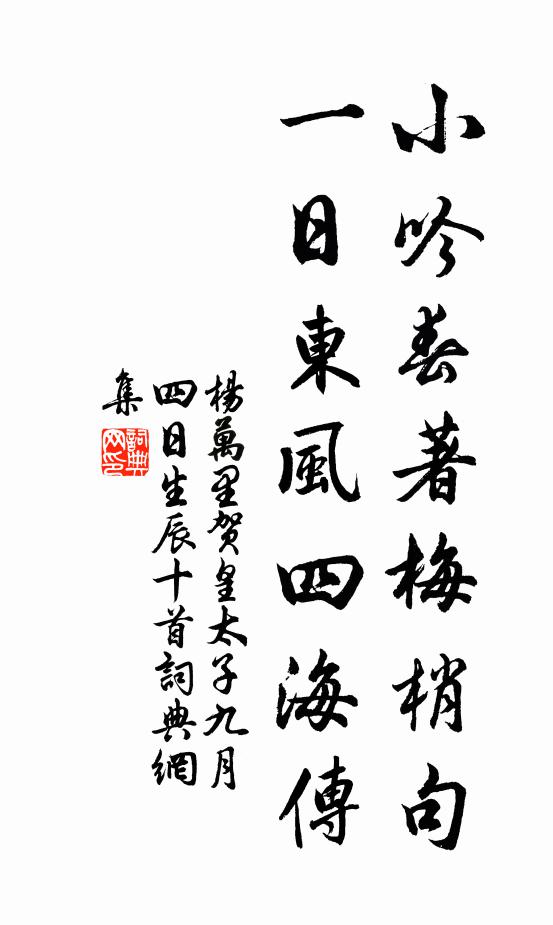 小吟春著梅梢句
一日東風四海傳
楊萬里賀皇太子九月
四日生辰十首詞典網
集
詞典
网印